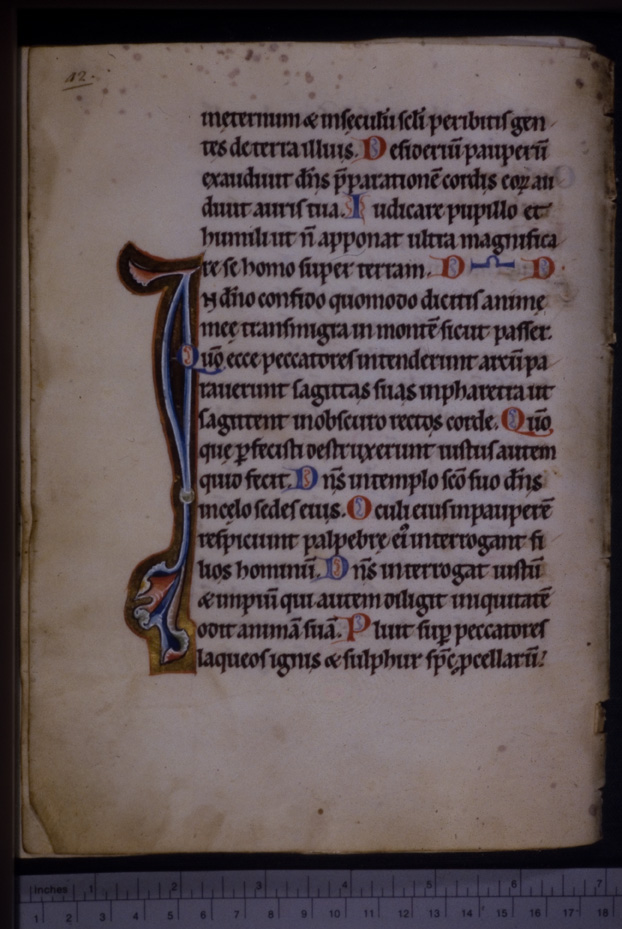 12.
ineternum & insęculū sclī peribitis gen
tes deterra illius. Desideriū pauperū
exaudiuit dn̄s p̄parationē cordis eoꝝ au
diuit auris tua. Iudicare pupillo et
humili ut n̄ apponat ultra magnifica
re se homo super terram. D D
IN dn̄o confido quomodo dicitis animę
meę transmigra in montē sicut passer.
Quō ecce peccatores intenderunt arcū pa
rauerunt sagittas suas inpharetra ut
sagittent inobscuro rectos corde. Quō
que ꝑfecisti destruxerunt iustus autem
quid fecit. Dn̄s intemplo scō suo dn̄s
incęlo sedes eius. Oculi eius inpauperē
respiciunt palpebrę ei᷒ interrogant fi
lios hominū. Dn̄s interrogat iustū
& impiū qui autem diligit iniquitatē
odit animā suā. Pluit suꝑ peccatores
laqueos ignis & sulphur sp̄c ꝓcellarū.
inches 1 2 3 4 5 6 7
1 2 3 4 5 6 7 8 9 10 11 12 13 14 15 16 17 18